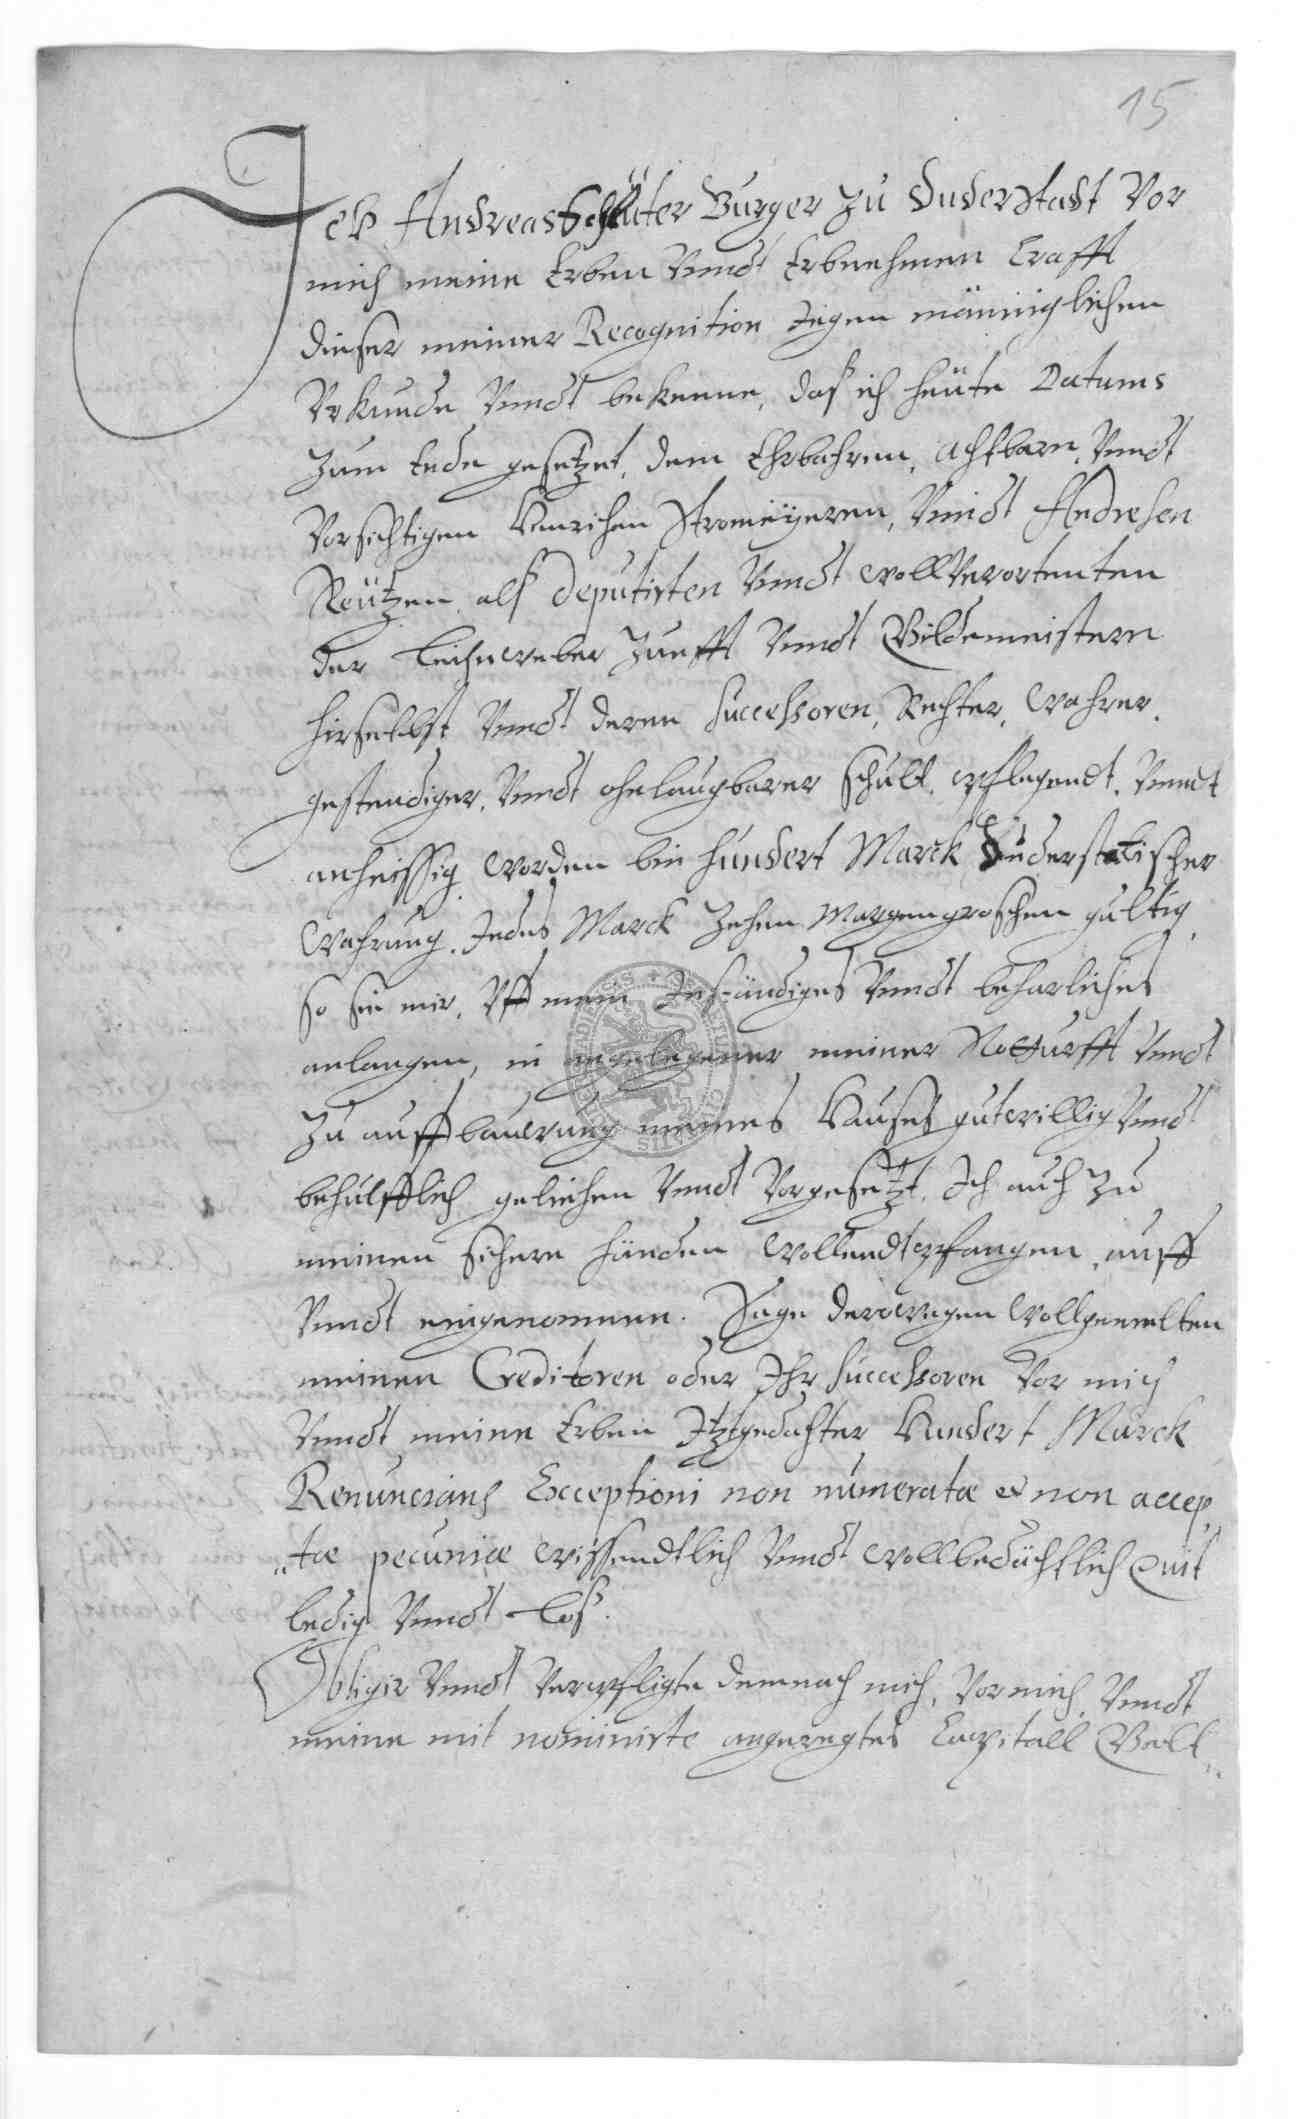 15
Ich Andreas Schlüter Burger zu Duderstadt vor
mich meine Erben vnndt Erbnehmen Crafft
dieser meiner Recognition iegen männiglichen
Vrkunde vnndt bekenne, daß ich heüte Datums
zum Ende gesetzet, dem Ehrbahren, achtbarn, vnndt
vorsichtigen Henrichen Stromeÿeren, vnndt Andresen
Reützen, alß deputirten vnndt wollverortenten
der Leineweber Zunfft vnndt Gildemeistern
hirselbst vnndt deren Successoren, Rechter, wahrer,
gestendiger, vnndt ohnlaugbarer schult, pflegendt, vnndt
anheissig worden bin hundert Marck Duderstatischer
wahrung, Jedes Marck zehen Margengroschen gültig,
so sie mir, vff mein inständiges vnndt beharliches
anlangen, in angelegener meiner Notturfft vnndt
zu auffbauwung meines Hauses gutwillig vnndt
behülfflich geliehen vnndt vorgesetzt, Ich auch zu
meinen sichern händen wollendtpfangen, auff
vnndt eingenommen. Sage derowegen wollgemelten
meinen Creditoren oder Ihr Successoren vor mich
vnndt meine Erben Itztgedachter Hundert Marck
Renuncians Exceptioni non numeratæ et non accep,
"tæ pecuniæ wissendtlich vnndt wollbedächtlich quit
ledig vnndt loß.
Obligir vnndt verpfligte demnach mich, vor mich, vnndt
meine mit nominirte angeregtes Capitall